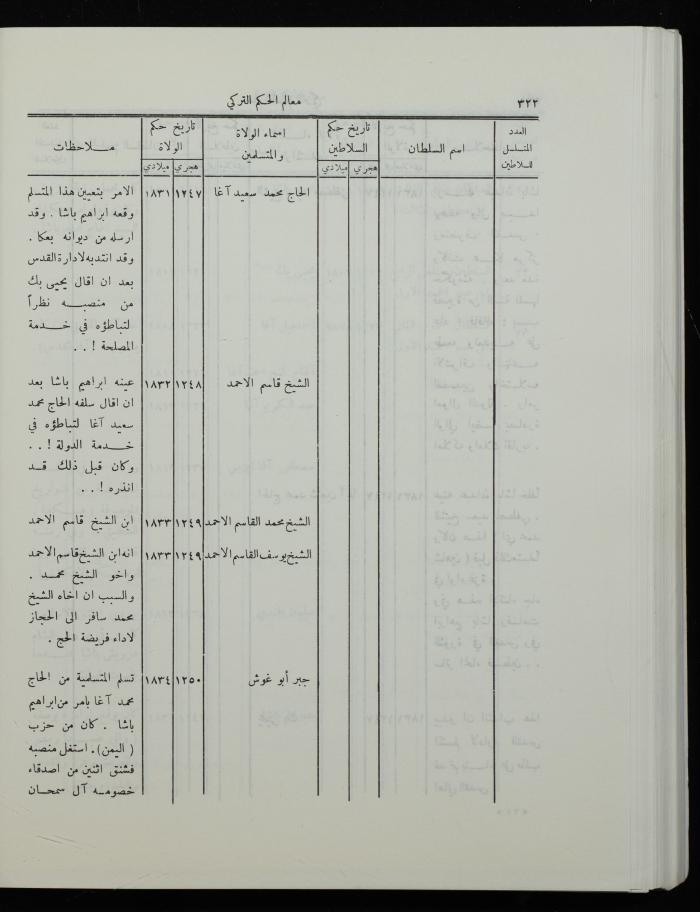 ٣٢٢
معالم الحكم التركي
العدد المتسلسل للسلاطين
اسم السلطان
تاريخ حكم السلاطين
هجري ميلادي
اسماء الولاة والمتسلمين
تاريخ حكم الولاة
هجري ميلادي
مـلاحظات
الحاج محمد سعيد آغا ١٢٤٧ ١٨٣١ الامر بتعيين هذا المتسلم
وقعه ابراهيم باشا . وقد
ارسله من ديوانه بعكا .
وقد انتدبه لادارة القدس
بعد ان اقال يحيى بك
من منصبـــه نظراً
لتباطؤه في خـــدمة
المصلحة ! . .
الشيخ قاسم الاحمد ١٢٤٨ ١٨٣٢ عينه ابراهيم باشا بعد
ان اقال سلفه الحاج محمد
سعيد آغا لتباطؤه في
خـــدمة الدولة ! . .
وكان قبل ذلك قـــد
انذره ! . .
الشيخ محمد القاسم الاحمد ١٢٤٩ ١٨٣٣ ابن الشيخ قاسم الاحمد
الشيخ يوسف القاسم الاحمد ١٢٤٩ ١٨٣٣ انه ابن الشيخ قاسم الاحمد
واخو الشيخ محمـــد .
والسبب ان اخاه الشيخ
محمد سافر الى الحجاز
لاداء فريضة الحج .
جبر أبو غوش ١٢٥٠ ١٨٣٤ تسلم المتسلمية من الحاج
محمد آغا بامر من ابراهيم
باشا . كان من حزب
( اليمن ) . استغل منصبه
فشنق اثنين من اصدقاء
خصومـــه آل سمحـــان